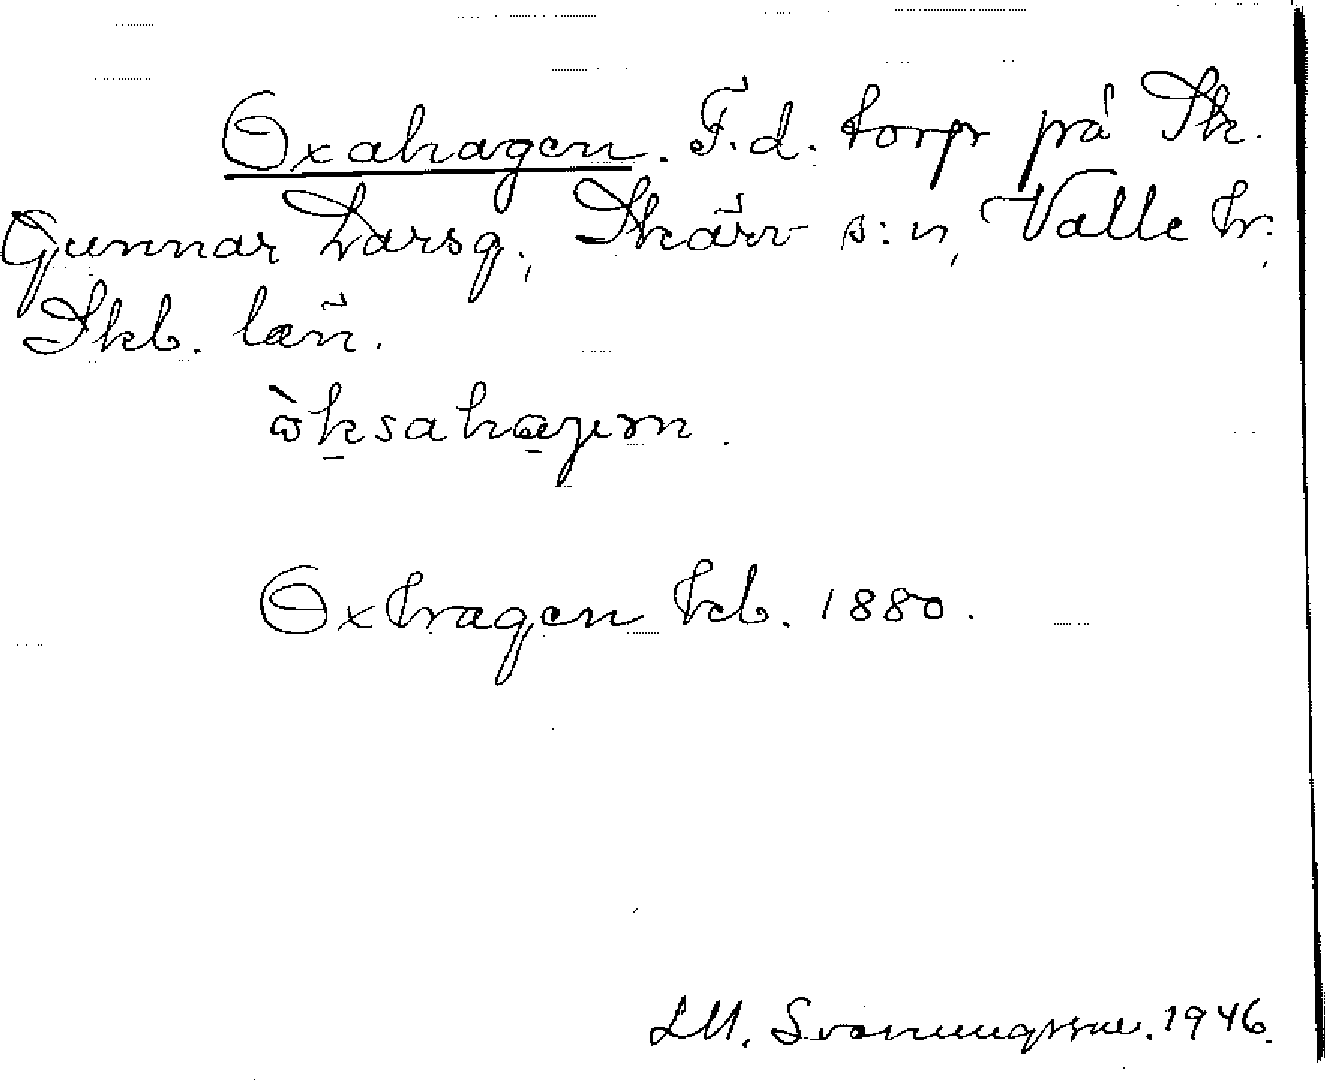 Oxahagen. F.d. torp på Sk.
Gunnar Larsg., Skärv s:n, Valle hr.,
Skb. län.
Oxhagen kb. 1880.
1946.